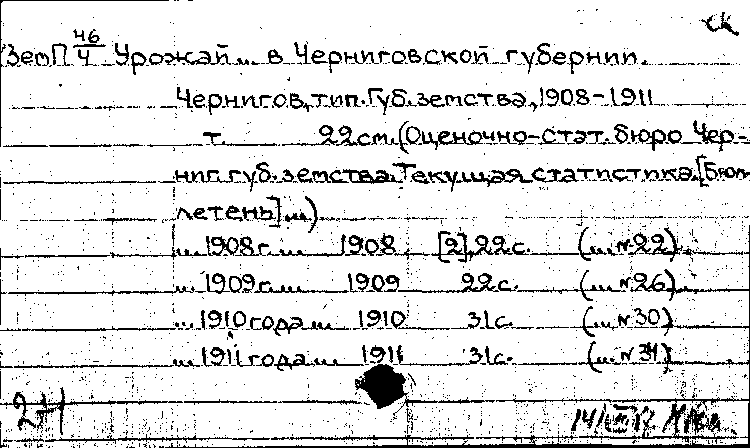 СК
ЗемП 46/4 Урожай... в Черниговской губернии.
Чернигов, тип. Губ. земства, 1908-1911
т. 22см. (Оценочно-стат. бюро Чер-
ниг. губ. земства. Текущая статистика. [Бюл-
летень]...)
... 1908г.... 1908 [2], 22с. (... №22)
... 1909г.... 1909 22с. (... №26)
... 1910 года... 1910 31с. (... №30)
... 1911 года... 1911 31с. (... №31)
2Н